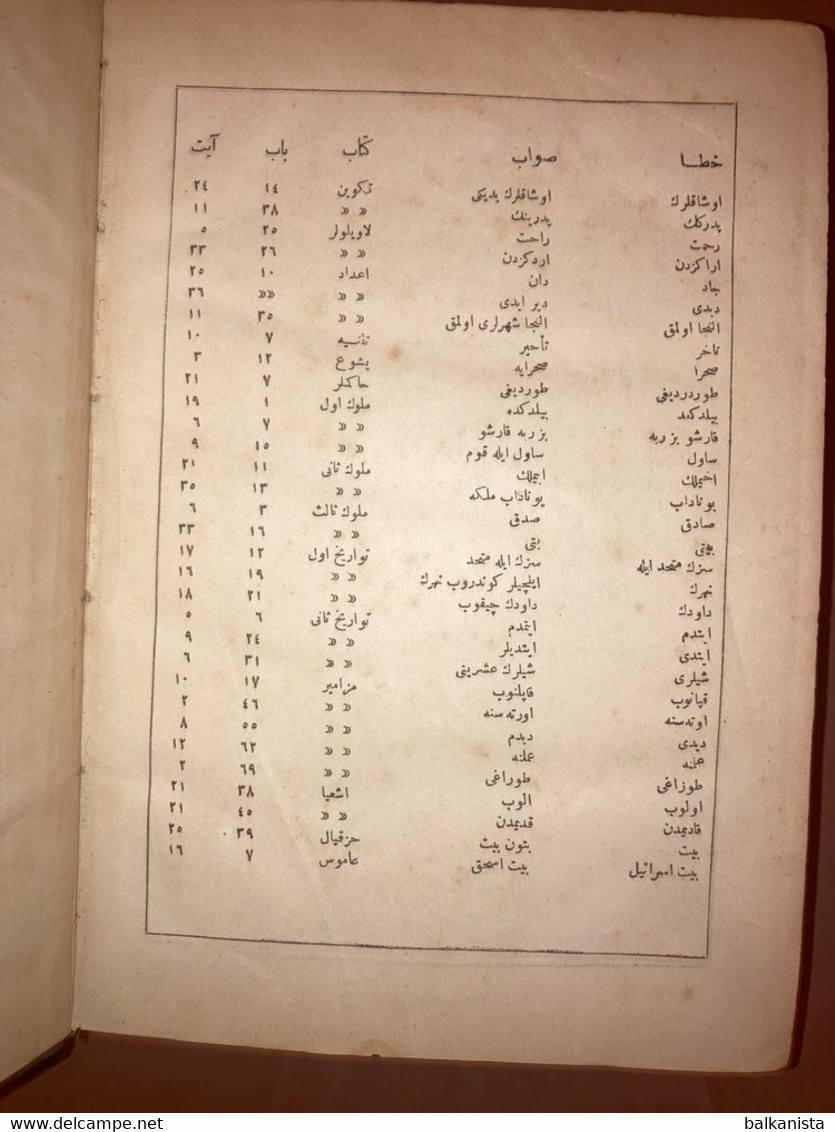 خطا صواب كتاب باب آيت
اوشاقلرك اوشاقلرك يديكى تكوين ١٤ ٢٤
پدركك پدرينك » » ٣٨ ١١
رحمت راحت لاويلولر ٢٥ ٥
اراكزدن اردكزدن » » ٢٦ ٣٣
جاد دان اعداد ١٠ ٢٥
ديدى دير ايدى » » »» ٣٦
التجا اولمق التجا شهرلرى اولمق » » ٣٥ ١١
تاخر تأخير تثنيه ٧ ١٠
صحرا صحرايه يشوع ١٢ ٣
طوردرديغى طورديغى حاكملر ٧ ٢١
بيلدكمد بيلدكده ملوك اول ١ ١٩
قارشو بز ربه بز ربه قارشو » » ٧ ٦
ساول ساول ايله قوم » » ١٥ ٩
اخيملك ابيملك ملوك ثانى ١١ ٢١
يوناداب يوناداب ملكه » » ١٣ ٣٥
صادق صدق ملوك ثالث ٣ ٦
بيتى بتى » » ١٦ ٣٣
سزك متحد ايله سزك ايله متحد تواريخ اول ١٢ ١٧
نهرك ايلچيلر كوندروب نهرك » » ١٩ ١٦
داودك داودك چيقوب » » ٢١ ١٨
ايتدم ايتمدم تواريخ ثانى ٦ ٥
ايتدى ايتديلر » » ٢٤ ٩
شيلرى شيلرك عشرينى » » ٣١ ٦
قپانوب قاپلنوب مزامير ١٧ ١٠
اوته سنه اورته سنه » » ٤٦ ٢
ديدى ديدم » » ٥٥ ٨
عملنه عملنه » » ٦٢ ١٢
طوزاغى طوراغى » » ٦٩ ٢
اولوب الوب اشعيا ٣٨ ٢١
قاديمدن قديمدن » » ٤٥ ٢١
بيت بتون بيت حزقيال ٣٩ ٢٥
بيت اسرائيل بيت اسحق عاموس ٧ ١٦
www.delcampe.net
balkanista